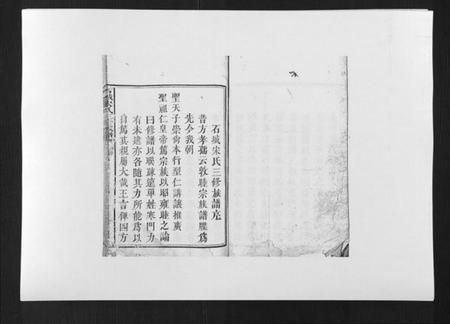 石城宋氏三修族譜序
昔方孝孺云敦睦宗族譜牒爲
先今我朝
聖天子崇尚本行聖仁講讓推廣
聖祖仁皇帝篤宗族以昭雍睦之諭
曰修譜以聯疎遠單姓寒門力
有未逮亦各隨其力所能爲以
自篤其親屬大哉王言俾四方